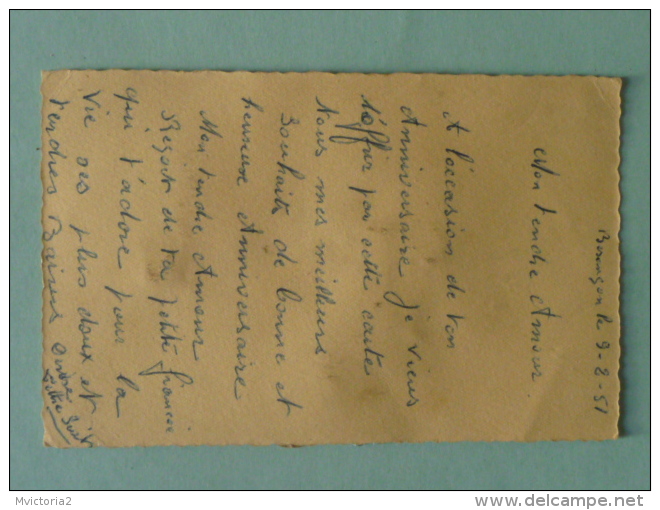 le 9-8-51
Mon tendre Amour.
A l'occasion de ton
Anniversaire je viens
t'offrir par cette carte
tous mes meilleurs
Souhaits de bonne et
heureuse Anniversaire
Mon tendre Amour
Reçoit de ta petite fiancée
qui t'adore pour la
Vie ses plus doux et
tendres Baisers
Mvictoria2
www.delcampe.net